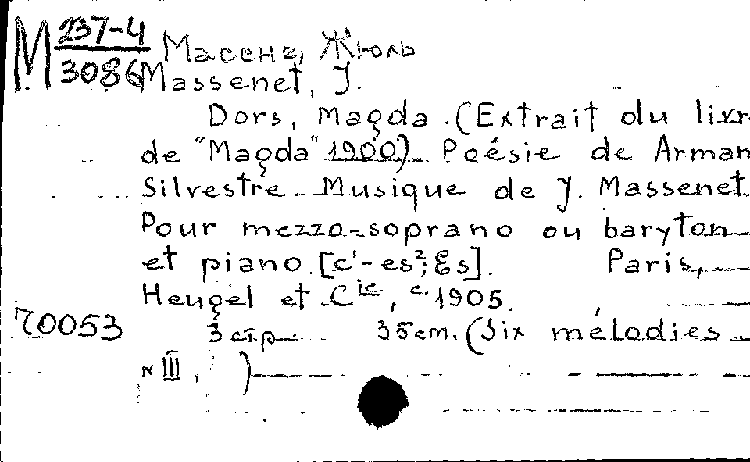 M 237-4
3086
Масснэ, Жюль
Massenet, J.
Dors, Magda. (Extrait du livr
de "Magda" 1900). Poésie de Arman
Silvestre. Musique de J. Massenet
Pour mezzo-soprano ou baryton
et piano. [c'-es²; Es]. Paris,
Heugel et Cie, c. 1905.
70053 3 стр. 35cm. (Six mélodies
N III, )